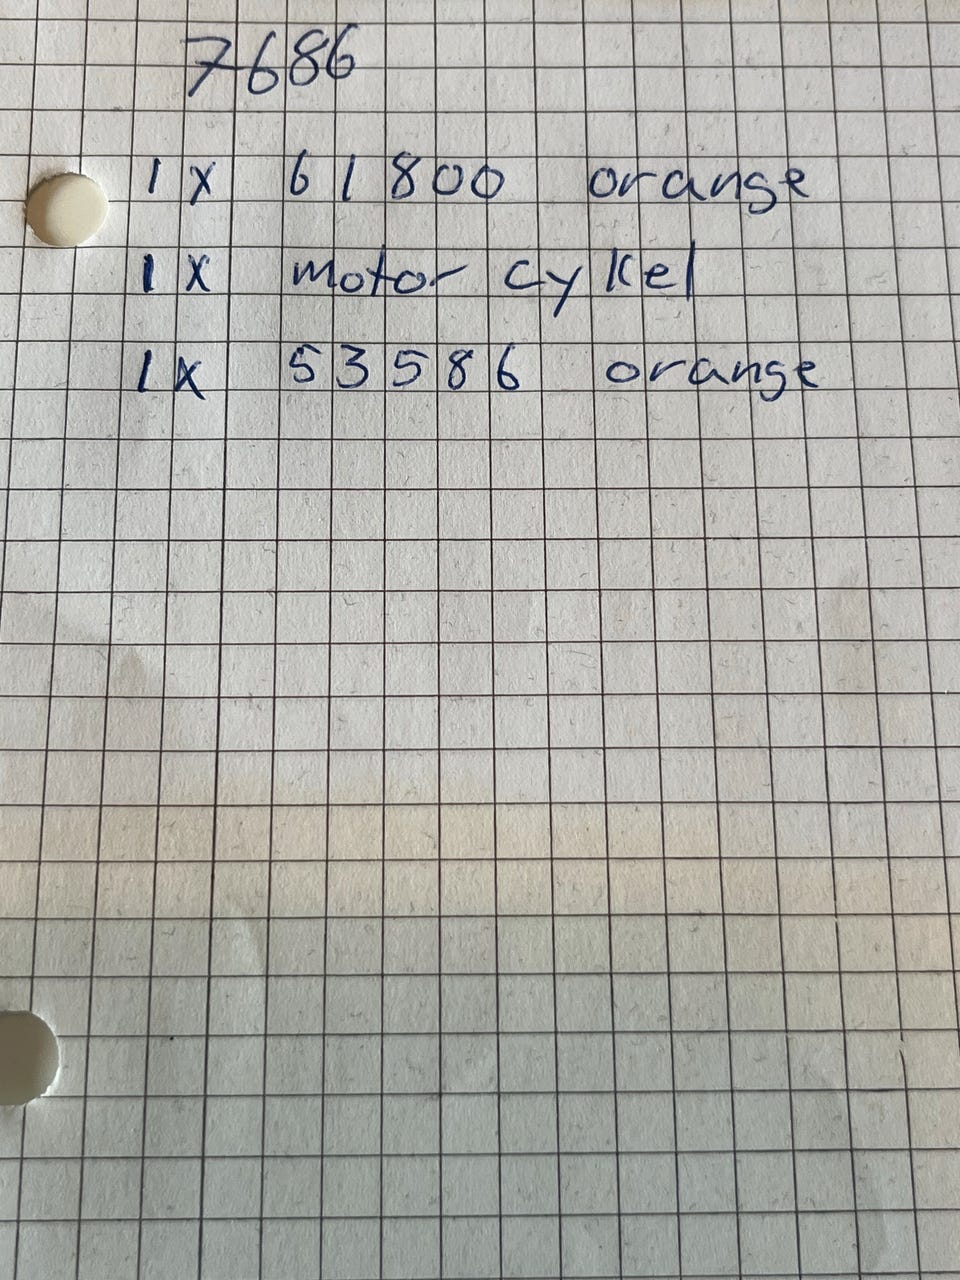 7686
1 x 61800 orange
1 x motor cykel
1x 53586 orange